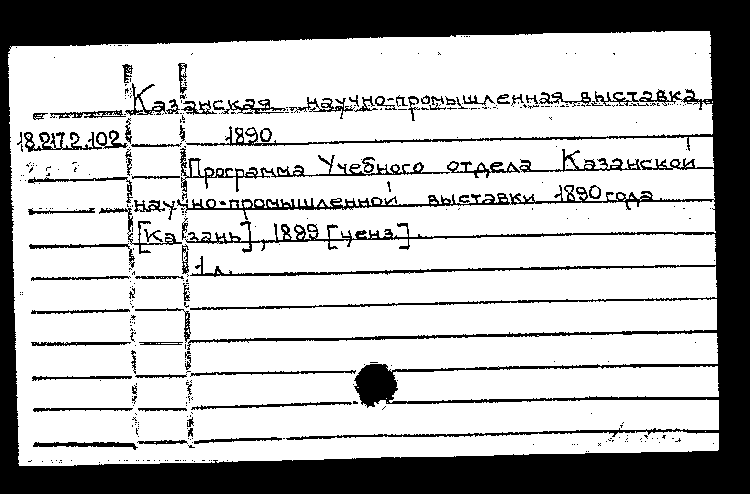 Казанская научно-промышленная выставка,
18.217.2.102. 1890.
Программа Учебного отдела Казанской
научно-промышленной выставки 1890 года
[Казань], 1889 [ценз].
1 л.